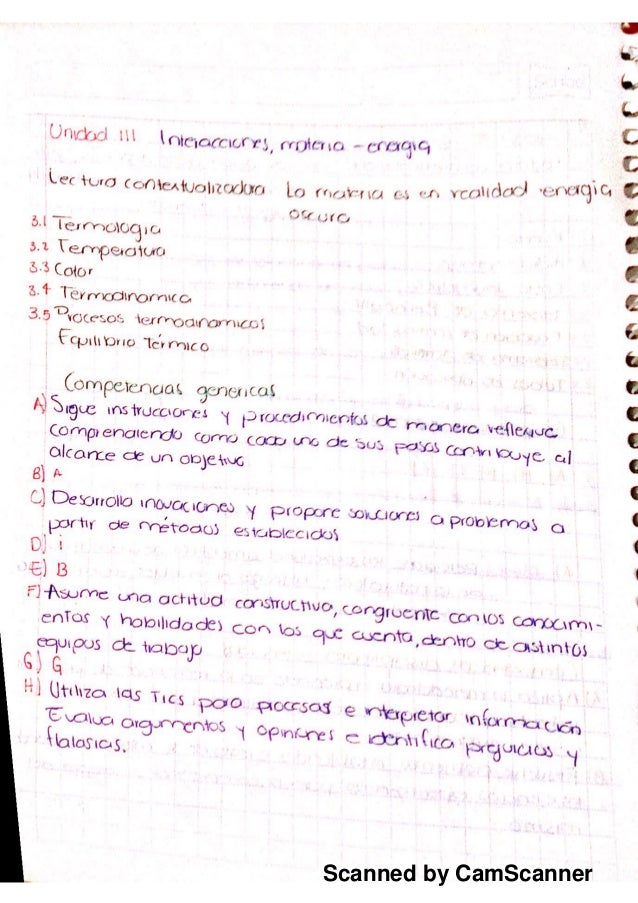 Unidad III Interacciones, materia - energia
Lectura contextualizadora La materia es en realidad energia
oscura
3.1 Termologia
3.2 Temperatura
3.3 Calor
3.4 Termodinamica
3.5 Procesos termodinamicos
Equilibrio Térmico
Competencias genericas
A) Sigue instrucciones y procedimientos de manera reflexiva
comprendiendo como cada uno de sus pasos contribuye al
alcance de un objetivo
B) A
C) Desarrolla inovaciones y propone soluciones a problemas a
partir de métodos establecidos
D) i
E) B
F) Asume una actitud constructiva, congruente con los conocimi-
entos y habilidades con los que cuenta, dentro de distintos
equipos de trabajo
G) G
H) Utiliza las Tics para procesar e interpretar información
Evalua argumentos y opiniones e identifica prejuicios y
flalasias.
Scanned by CamScanner